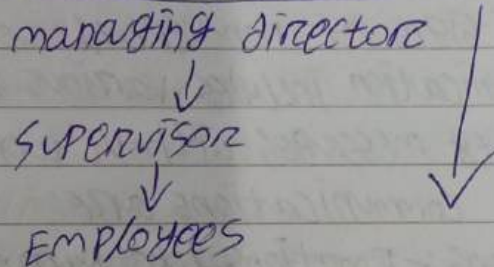 managing director
↓
Supervisor
↓
Employees